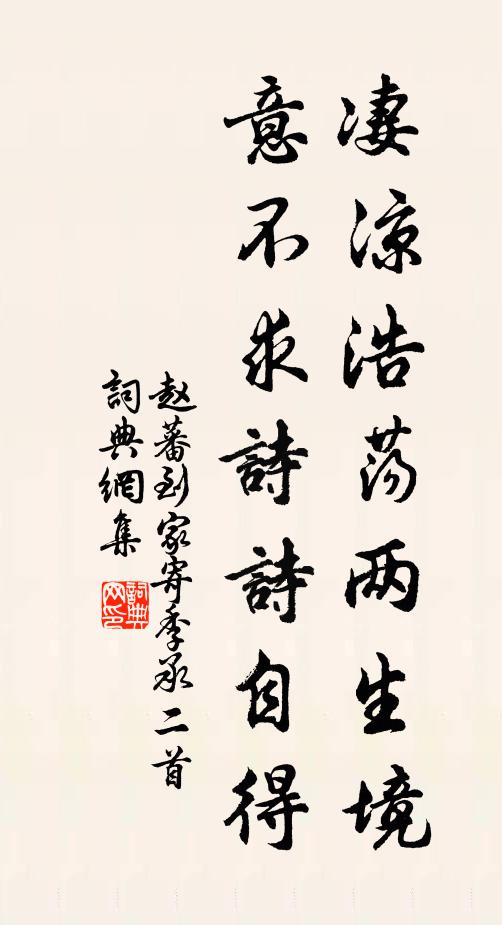 凄涼浩荡两生境
意不求詩詩自得
赵蕃到家寄季承二首
詞典網集
詞典
网印